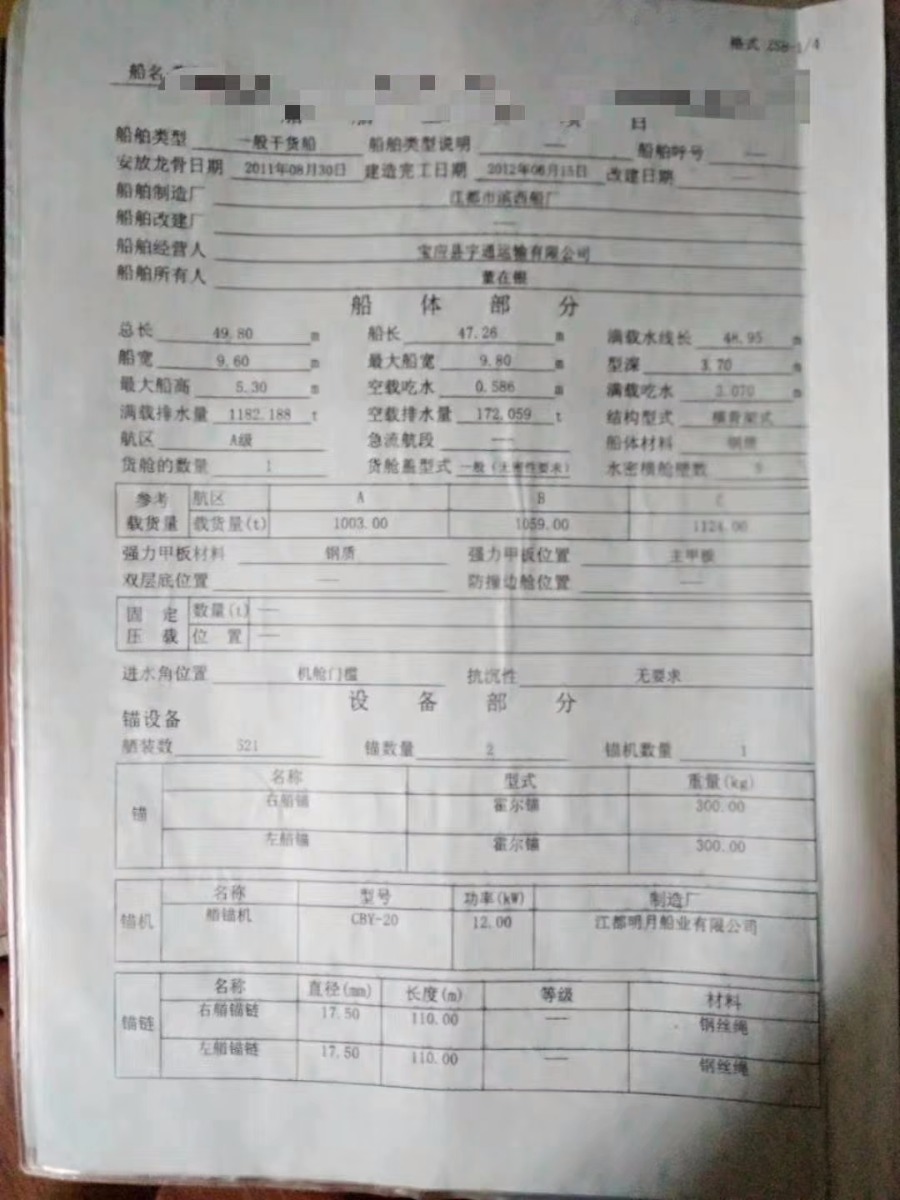 格式 ZSB-1/4
船名
项 目
船舶类型 一般干货船 船舶类型说明 — 船舶呼号 —
安放龙骨日期 2011年08月30日 建造完工日期 2012年06月15日 改建日期 —
船舶制造厂 江都市滨西船厂
船舶改建厂 —
船舶经营人 宝应县宇通运输有限公司
船舶所有人 董在银
船 体 部 分
总长 49.80 m 船长 47.26 m 满载水线长 48.95 m
船宽 9.60 m 最大船宽 9.80 m 型深 3.70 m
最大船高 5.30 m 空载吃水 0.586 m 满载吃水 3.070 m
满载排水量 1182.188 t 空载排水量 172.059 t 结构型式 横骨架式
航区 A级 急流航段 — 船体材料 钢质
货舱的数量 1 货舱盖型式 一般(无密性要求) 水密横舱壁数
参考 航区 A B C
载货量 载货量(t) 1003.00 1059.00 1124.00
强力甲板材料 钢质 强力甲板位置 主甲板
双层底位置 — 防撞边舱位置 —
固 定 数量(t) —
压 载 位 置 —
进水角位置 机舱门槛 抗沉性 无要求
设 备 部 分
锚设备
舾装数 521 锚数量 2 锚机数量 1
名称 型式 重量(kg)
锚 右艏锚 霍尔锚 300.00
左艏锚 霍尔锚 300.00
名称 型号 功率(kW) 制造厂
锚机 艏锚机 CBY-20 12.00 江都明月船业有限公司
名称 直径(mm) 长度(m) 等级 材料
锚链 右艏锚链 17.50 110.00 — 钢丝绳
左艏锚链 17.50 110.00 — 钢丝绳